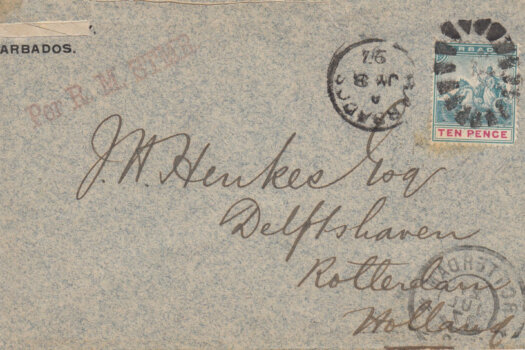 ARBADOS.
Per R. M. ST
BARBADOS
JA 8
97
BARBAD
TEN PENCE
J. H. Henkes Esq
Delftshaven
Rotterdam
Holland.
ROTTERDAM